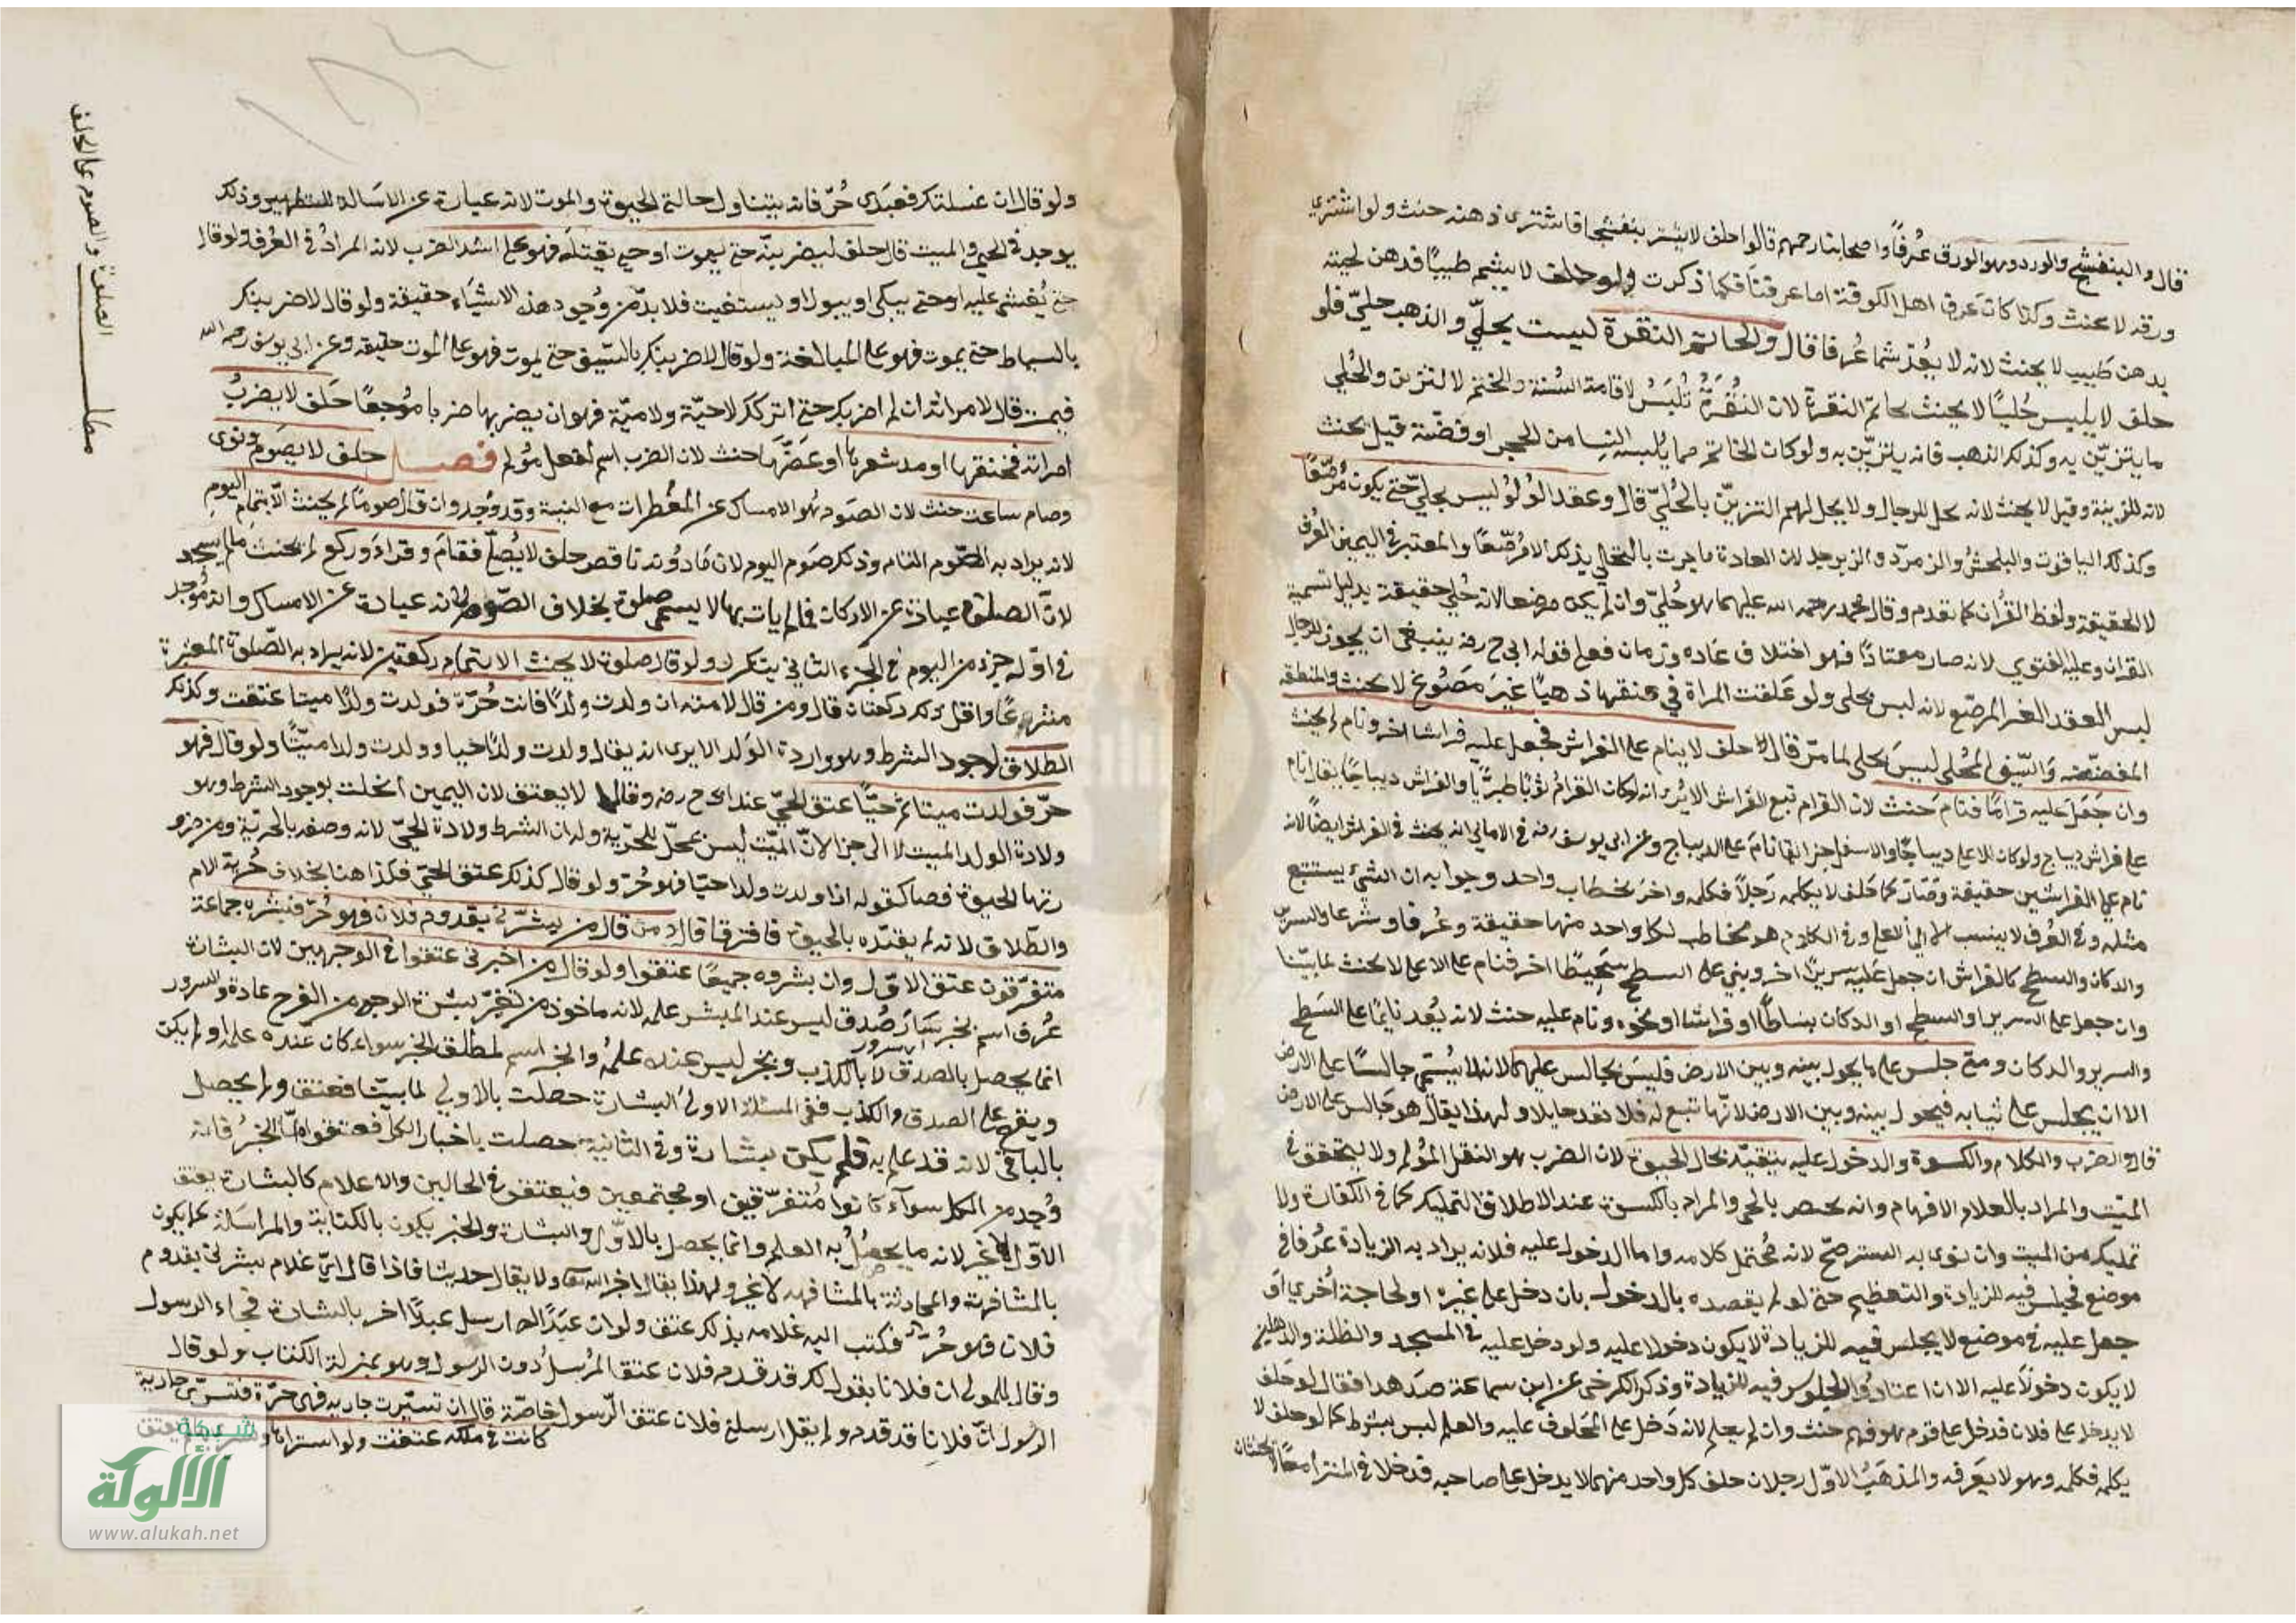 قال والبنفسج والورد وهو الورق عرفا واصحابنا رحمهم قالوا حلف لا يشتر بنفسجا فاشترى دهنه حنث ولو اشترى
ورقه لا يحنث وكذا كان عرف اهل الكوفة اما عرفنا فكما ذكرت ولو حلف لا يشم طيبا فدهن لحيته
بدهن طيب لا يحنث لانه لا يعد شما عرفا قال والخاتم النقرة ليست بحلي والذهب حلي فلو
حلف لا يلبس حليا لا يحنث بخاتم النقرة لان النقرة تلبس لاقامة السنة والختم لا لتزين والحلي
ما يتزين به وكذلك الذهب فانه يتزين به ولو كان الخاتم مما يلبسه النسا من الحجر او فضة قيل يحنث
لانه للزينة وقيل لا يحنث لانه يحل للرجال ولا يحل لهم التزين بالحلي قال وعقد اللؤلؤ ليس بحلي حتى يكون مرصعا
وكذلك الياقوت والبلخش والزمرد والزبرجد لان العادة ما جرت بالتحلي بذلك الا مرصعا والمعتبر في اليمين العرف
لا الحقيقة ولفظ القرأن كما تقدم وقال محمد رحمه الله عليهما هو حلي وان لم يكن مرصعا لانه حلي حقيقة بدليل تسمية
القران وعليه الفتوى لانه صار معتادا فهو اختلاف عاده وزمان فعلى قوله ابي ح رضه ينبغي ان يجوز للرجال
لبس العقد الغير المرصع لانه ليس بحلى ولو علقت المراة في عنقها ذهبا غير مصوغ لا يحنث والمنطقة
المفضضة والسيف المحلى ليس بحلى لما مر قال حلف لا ينام على الفراش فجعل عليه فراشا اخر ونام لم يحنث
وان جعل عليه قراما فنام حنث لان القرام تبع الفراش الا يرى انه لو كان القرام ثوبا طبريا والفراش ديباجا يقال نام
على فراش ديباج ولو كان الاعلى ديباجا والاسفل خزا يقال نام على الديباج وعن ابي يوسف رضه في الامالي انه يحنث في الفراش ايضا لانه
نام على الفراشين حقيقة وصار كما حلف لا يكلمه رجلا فكلمه واخر بخطاب واحد وجوابه ان الشيء يستتبع
مثله وفي العرف لا ينسب الا الى الاعلى وفي الكلام هو مخاطب لكل واحد منهما حقيقة وعرفا وشرعا والسرير
والدكان والسطح كالفراش ان جعل عليه سريرا اخر وبني على السطح سطحا اخر فنام على الاعلى لا يحنث لما بينا
وان جعل على السرير او السطح او الدكان بساطا او فراشا او نحوه ونام عليه حنث لانه يعد نايما على السطح
والسرير والدكان ومتى جلس على ما يحول بينه وبين الارض فليس بجالس عليها لانه لا يسمى جالسا على الارض
الا ان يجلس على ثيابه فيحول بينه وبين الارض لانها تبع له فلا تعد حايلا ولهذا يقال هو جالس على الارض
قال والضرب والكلام والكسوة والدخول عليه يتقيد بحال الحيوة لان الضرب هو الفعل المؤلم ولا يتحقق في
الميت والمراد بالكلام الافهام وانه يختص بالحي والمراد بالكسوة عند الاطلاق التمليك كما في الكفارة ولا
تمليك من الميت وان نوى به الستر صح لانه محتمل كلامه واما الدخول عليه فلانه يراد به الزيادة عرفا في
موضع يجلس فيه للزيادة والتعظيم حتى لو لم يقصده بالدخول بان دخل على غيره او لحاجة اخرى او
جعل عليه في موضع لا يجلس فيه للزيادة لا يكون دخولا عليه ولو دخل عليه في المسجد والظلة والدهليز
لا يكون دخولا عليه الا ان اعتادوا الجلوس فيه للزيادة وذكر الكرخي عن ابن سماعة ضد هذا فقال لو حلف
لا يدخل على فلان فدخل على قوم هو فيهم حنث وان لم يعلم لانه دخل على المحلوف عليه والعلم ليس بشرط كما لو حلف لا
يكلمه فكلمه وهو لا يعرفه والمذهب الاول رجلان حلف كل واحد منهما لا يدخل على صاحبه فدخلا في المنزل معا لا يحنثان
ولو قال ان غسلتك فعبدى حر فانه يتناول حالتي الحيوة والموت لانه عبارة عن الاسالة للتطهير وذلك
يوجد في الحي والميت قال حلف ليضربنه حتى يموت او حتى يقتله فهو على اشد الضرب لانه المراد في العرف ولو قال
حتى يغشى عليه او حتى يبكى او يبول او يستغيث فلا بد من وجود هذه الاشياء حقيقة ولو قال لاضربنك
بالسياط حتى يموت فهو على المبالغة ولو قال لاضربنك بالسيف حتى يموت فهو على الموت حقيقة وعن ابي يوسف رحمه الله
فيمن قال لامراته ان لم اضربك حتى اتركك لا حية ولا ميتة فهو ان يضربها ضربا موجعا حلف لا يضرب
امراته فخنقها او مد شعرها او عضها حنث لان الضرب اسم لفعل مؤلم فصل حلف لا يصوم ونوى
وصام ساعة حنث لان الصوم هو الامساك عن المفطرات مع النية وقد وجد وان قال صوما لم يحنث الا بتمام اليوم
لانه يراد به الصوم التام وذلك صوم اليوم لان ما دونه ناقص حلف لا يصلي فقام وقرأ وركع لم يحنث ما لم يسجد
لان الصلوة عبارة عن الاركان فما لم يات بها لا يسمى صلوة بخلاف الصوم لانه عبارة عن الامساك وانه وجد
في اوله جزء من اليوم في الجزء الثاني يتكرر ولو قال صلوة لا يحنث الا بتمام ركعتين لانه يراد به الصلوة المعتبرة
شرعا واقل ذلك ركعتان قال ومن قال لامته ان ولدت ولدا فانت حرة فولدت ولدا ميتا عتقت وكذلك
الطلاق لوجود الشرط وهو ولادة الولد الا يرى انه يقال ولدت ولدا حيا وولدت ولدا ميتا ولو قال فهو
حر فولدت ميتا ثم حيا عتق الحي عند ابي ح رضه وقالا لا يعتق لان اليمين انحلت بوجود الشرط وهو
ولادة الولد الميت لا الى جزا لان الميت ليس بمحل للحرية وله ان الشرط ولادة الحي لانه وصفه بالحرية ومن ضرو
رتها الحيوة فصا كقوله اذا ولدت ولدا حيا فهو حر ولو قال كذلك عتق الحي فكذا هنا بخلاف حرية الام
والطلاق لانه لم يقيده بالحيوة فافترقا قال ومن قال من بشرني بقدوم فلان فهو حر فبشره جماعة
متفرقون عتق الاول وان بشروه جميعا عتقوا ولو قال من اخبرني عتقوا في الوجهين لان البشارة
عرف اسم لخبر سار صدق ليس عند المبشر علمه لانه ماخوذ من تغير بشرة الوجه من الفرح عادة والسرور
انما يحصل بالصدق لا بالكذب وبخبر ليس عنده علمه والخبر اسم لمطلق الخبر سواء كان عنده علمه او لم يكن
السرور
ويقع على الصدق والكذب ففي المسئلة الاولى البشارة حصلت بالاولي لما بينا فعتق ولم يحصل
بالباقي لانه قد علم به فلم يكن بشارة وفي الثانية حصلت باخبار الكل فعتقوا اما الخبر فانه
وجد من الكل سوآء كانوا متفرقين او مجتمعين فيعتقون في الحالين والاعلام كالبشارة يعتق
الاول لا غير لانه ما يحصل به العلم وانما يحصل بالاول والبشارة والخبر يكون بالكتابة والمراسلة كما يكون
بالمشافهة والمحادثة بالمشافهه لا غير ولهذا يقال اخبر الله تعا ولا يقال حدثنا فاذا قال اي غلام بشرني بقدوم
فلان فهو حر فكتب اليه غلامه بذلك عتق ولو ان عبدا له ارسل عبدا اخر بالبشارة فجاء الرسول
وقال للمولى ان فلانا يقول لك قد قدم فلان عتق المرسل دون الرسول وهو بمنزلة الكتاب ولو قال
الرسول ان فلانا قد قدم ولم يقل ارسلني فلان عتق الرسول خاصة قال ان تسريت جاريه فهى حرة فتسرى جارية
كانت في ملكه عتقت ولو اشتراها وتسراها لم تعتق
مطلب الصلوة والصوم على الحلف
شبكة
الألوكة
www.alukah.net